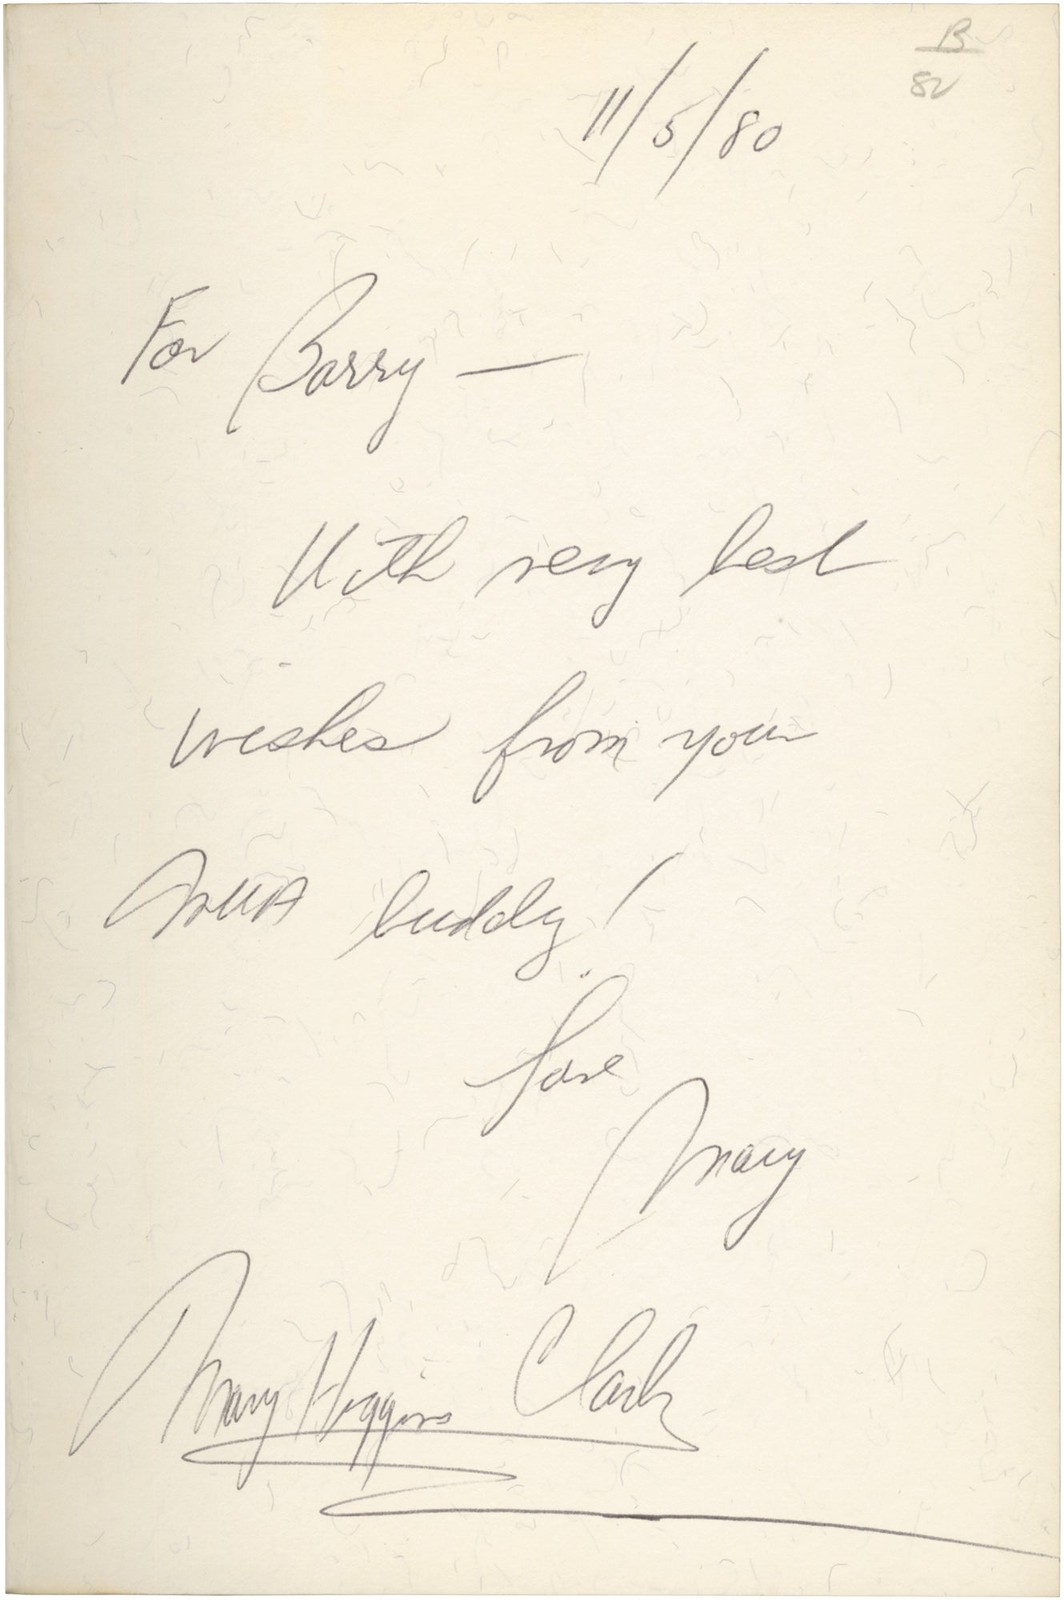 B
82
11/5/80
For Barry —
With very best
wishes from your
MWA buddy!
Love
Mary
Mary Higgins Clark